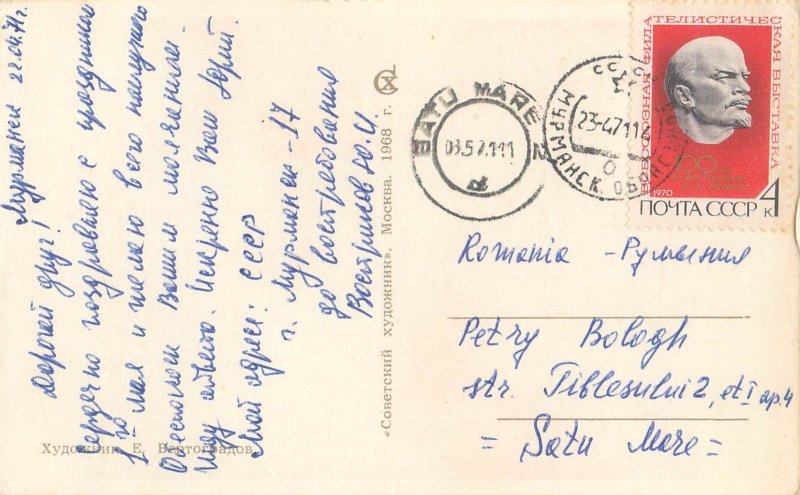 Мурманск 22.04.71г.
Дорогой друг!
Сердечно поздравляю с праздником
1го мая и желаю всего наилучшего
Обеспокоен Вашим молчанием.
Жду ответа. Искренно Ваш Юрий.
Мой адрес: СССР
г. Мурманск-17
до востребования
Вострикова Ю.И.
Художник Е. Вертоградов
«Советский художник». Москва. 1968 г.
SATU MARE 2
03.5 71.11
МУРМАНСК
23-4711
ВСЕСОЮЗНАЯ ФИЛАТЕЛИСТИЧЕСКАЯ ВЫСТАВКА
1970
ПОЧТА СССР 4 к
Romania - Румыния
Petry Bologh
str. Tiblesului 2, et I ap. 4
= Satu Mare =